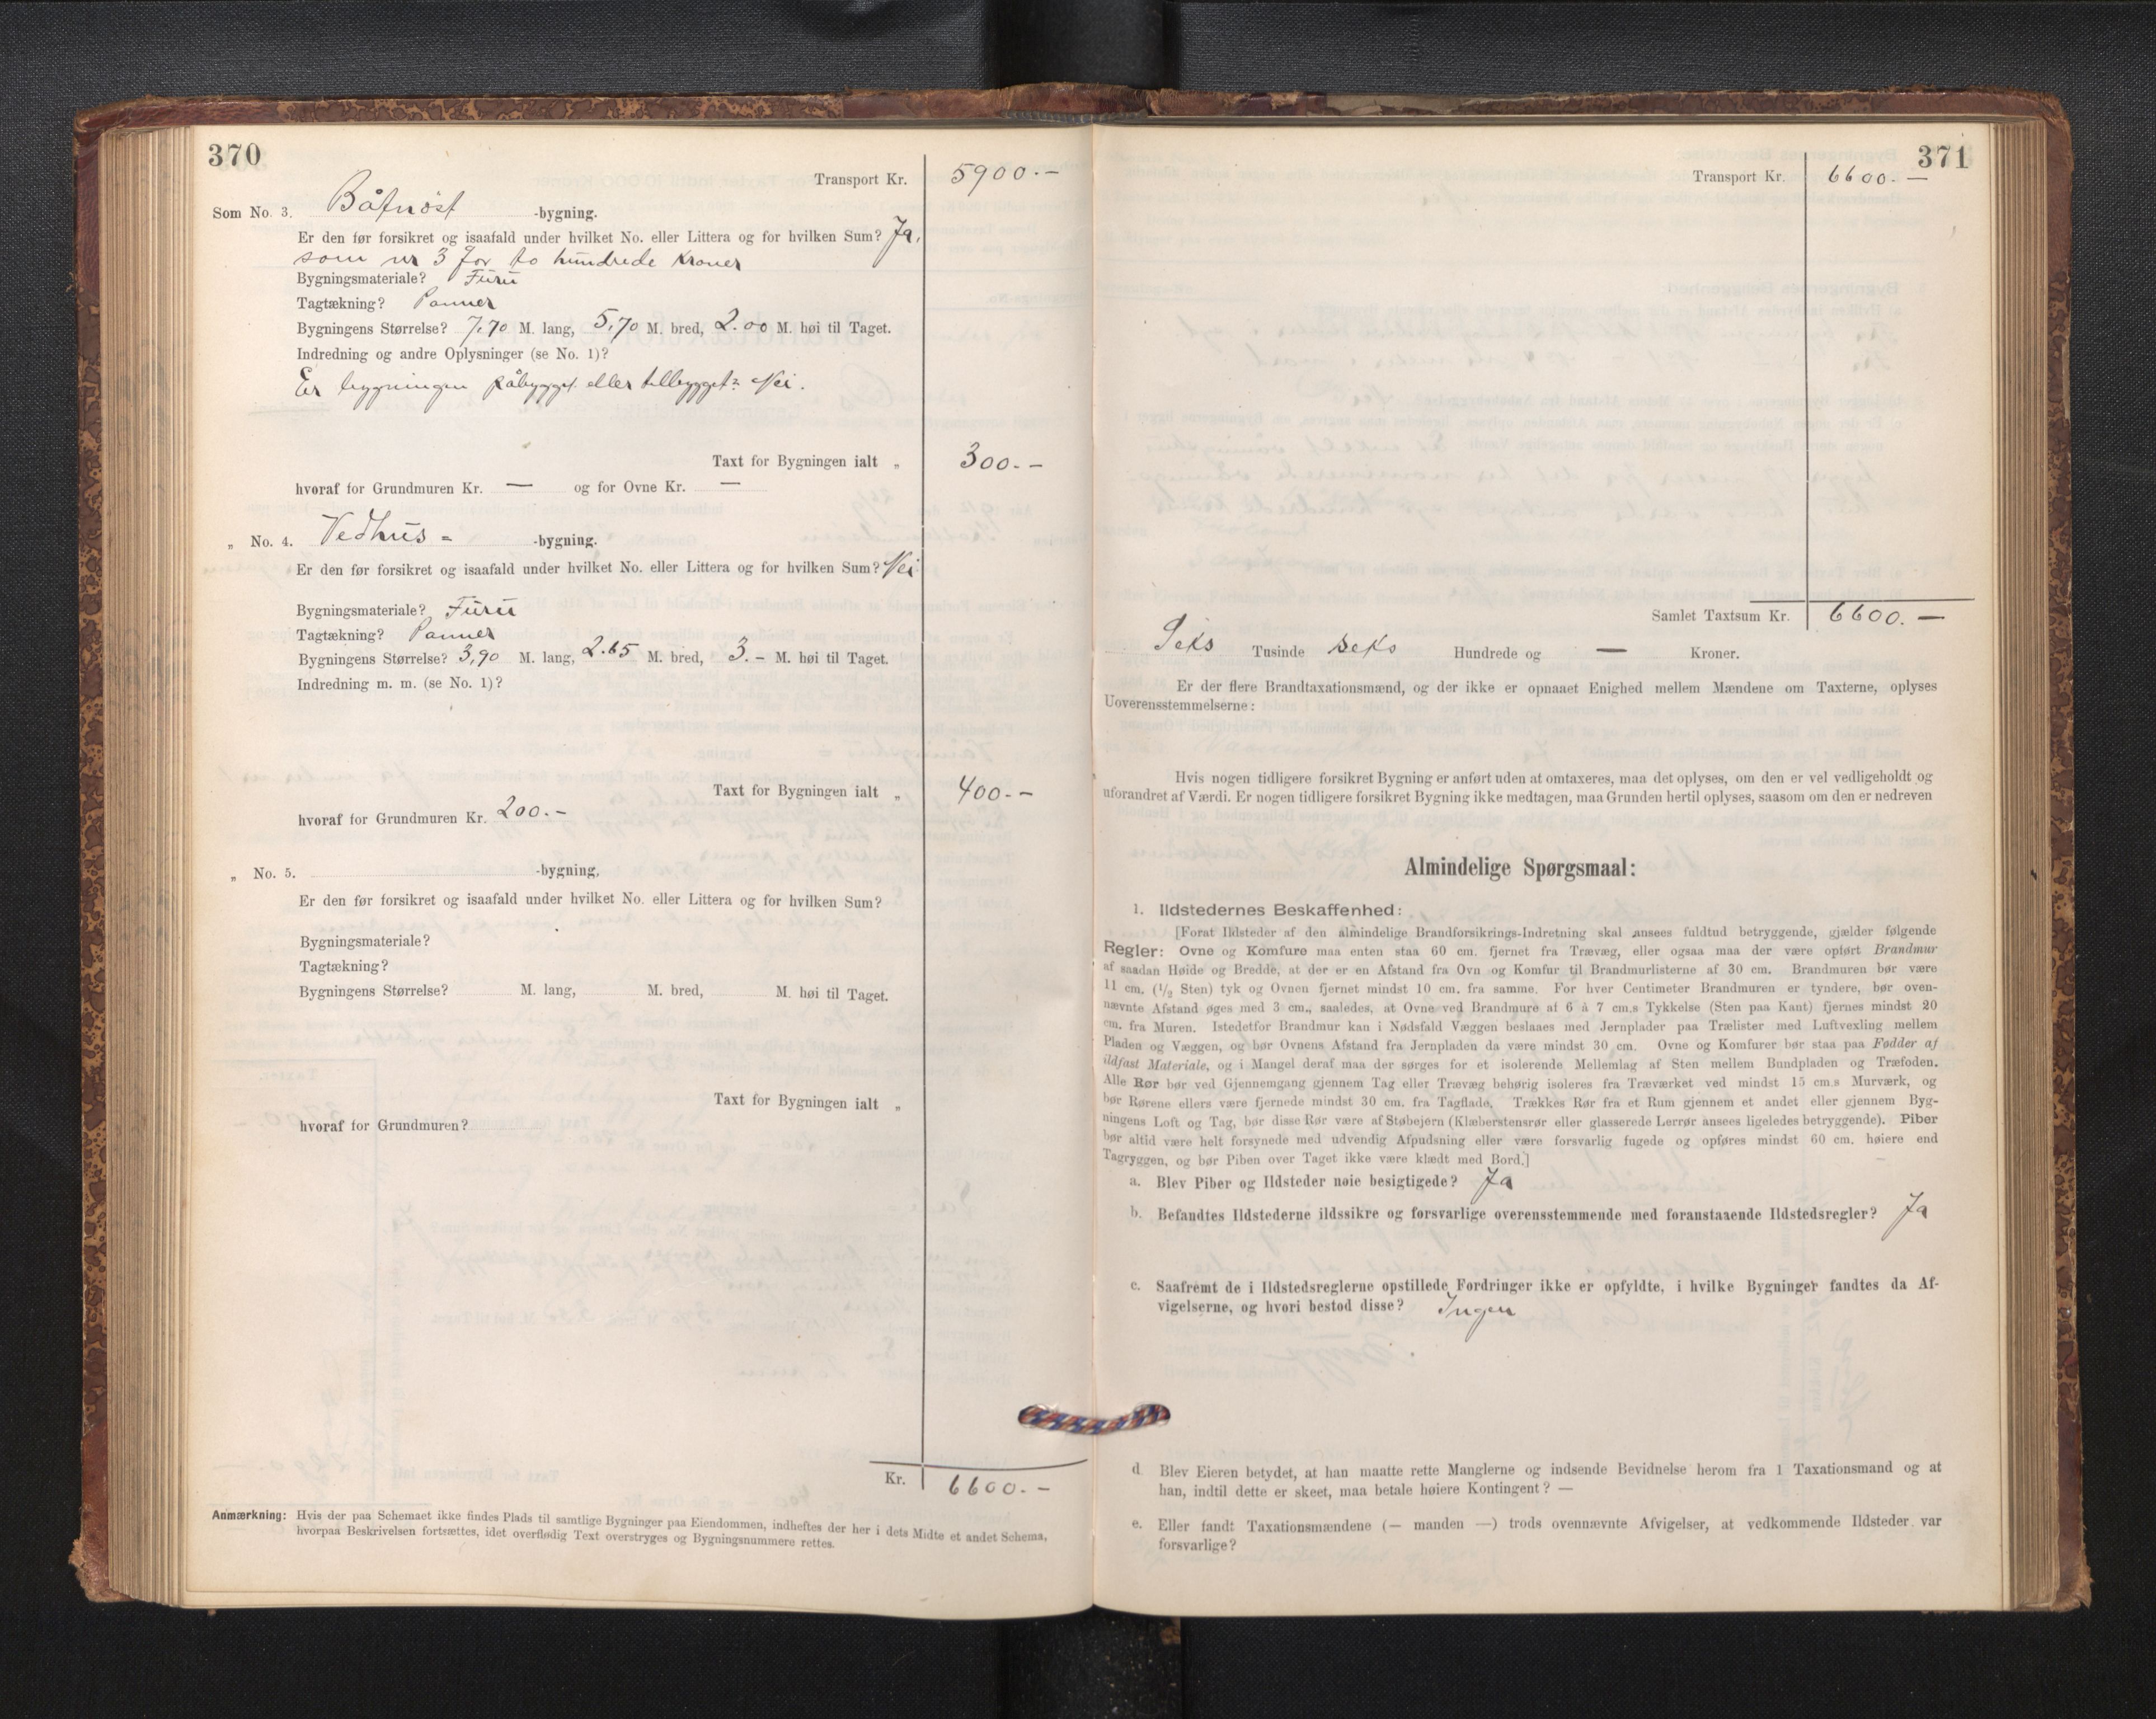 370
Transport Kr. 5900.-
Som No. 3. Båtnöst -bygning.
Er den før forsikret og isaafald under hvilket No. eller Littera og for hvilken Sum? Ja,
som nr 3 for to hundrede kroner
Bygningsmateriale? Furu
Tagtækning? Panner
Bygningens Størrelse? 7,70 M. lang, 5,70 M. bred, 2.00 M. høi til Taget.
Indredning og andre Oplysninger (se No. 1)?
Er bygningen påbygget eller tilbygget? Nei.
Taxt for Bygningen ialt „ 300.-
hvoraf for Grundmuren Kr. — og for Ovne Kr. —
„ No. 4. Vedhus = -bygning.
Er den før forsikret og isaafald under hvilket No. eller Littera og for hvilken Sum? Nei
Bygningsmateriale? Furu
Tagtækning? Panner
Bygningens Størrelse? 3,90 M. lang, 2.65 M. bred, 3.- M. høi til Taget.
Indredning m. m. (se No. 1)?
Taxt for Bygningen ialt „ 400.-
hvoraf for Grundmuren Kr. 200.-
„ No. 5. -bygning,
Er den før forsikret og isaafald under hvilket No. eller Littera og for hvilken Sum?
Bygningsmateriale?
Tagtækning?
Bygningens Størrelse? M. lang, M. bred, M. høi til Taget.
Taxt for Bygningen ialt „
hvoraf for Grundmuren?
Kr. 6600.-
Anmærkning: Hvis der paa Schemaet ikke findes Plads til samtlige Bygninger paa Eiendommen, indheftes der her i dets Midte et andet Schema,
hvorpaa Beskrivelsen fortsættes, idet overflødig Text overstryges og Bygningsnummere rettes.
371
Transport Kr. 6600.-
Samlet Taxtsum Kr. 6600.-
Seks Tusinde seks Hundrede og — Kroner.
Er der flere Brandtaxationsmænd, og der ikke er opnaaet Enighed mellem Mændene om Taxterne, oplyses
Uoverensstemmelserne:
Hvis nogen tidligere forsikret Bygning er anført uden at omtaxeres, maa det oplyses, om den er vel vedligeholdt og
uforandret af Værdi. Er nogen tidligere forsikret Bygning ikke medtagen, maa Grunden hertil oplyses, saasom om den er nedreven
Almindelige Spørgsmaal:
1. Ildstedernes Beskaffenhed:
[Forat Ildsteder af den almindelige Brandforsikrings-Indretning skal ansees fuldtud betryggende, gjælder følgende
Regler: Ovne og Komfure maa enten staa 60 cm. fjernet fra Trævæg, eller ogsaa maa der være opført Brandmur
af saadan Høide og Bredde, at der er en Afstand fra Ovn og Komfur til Brandmurlisterne af 30 cm. Brandmuren bør være
11 cm. (1/2 Sten) tyk og Ovnen fjernet mindst 10 cm. fra samme. For hver Centimeter Brandmuren er tyndere, bør oven-
nævnte Afstand øges med 3 cm., saaledes, at Ovne ved Brandmure af 6 à 7 cm.s Tykkelse (Sten paa Kant) fjernes mindst 20
cm. fra Muren. Istedetfor Brandmur kan i Nødsfald Væggen beslaaes med Jernplader paa Trælister med Luftvexling mellem
Pladen og Væggen, og bør Ovnens Afstand fra Jernpladen da være mindst 30 cm. Ovne og Komfurer bør staa paa Fødder af
ildfast Materiale, og i Mangel deraf maa der sørges for et isolerende Mellemlag af Sten mellem Bundpladen og Træfoden.
Alle Rør bør ved Gjennemgang gjennem Tag eller Trævæg behørig isoleres fra Træværket ved mindst 15 cm.s Murværk, og
bør Rørene ellers være fjernede mindst 30 cm. fra Tagflade. Trækkes Rør fra et Rum gjennem et andet eller gjennem Byg-
ningens Loft og Tag, bør disse Rør være af Støbejern (Klæberstensrør eller glasserede Lerrør ansees ligeledes betryggende). Piber
bør altid være helt forsynede med udvendig Afpudsning eller være forsvarlig fugede og opføres mindst 60 cm. høiere end
Tagryggen, og bør Piben over Taget ikke være klædt med Bord.]
a. Blev Piber og Ildsteder nøie besigtigede? Ja
b. Befandtes Ildstederne ildssikre og forsvarlige overensstemmende med foranstaaende Ildstedsregler? Ja
c. Saafremt de i Ildstedsreglerne opstillede Fordringer ikke er opfyldte, i hvilke Bygninger fandtes da Af-
vigelserne, og hvori bestod disse? Ingen
d Blev Eieren betydet, at han maatte rette Manglerne og indsende Bevidnelse herom fra 1 Taxationsmand og at
han, indtil dette er skeet, maa betale høiere Kontingent? —
e. Eller fandt Taxationsmændene (— manden —) trods ovennævnte Afvigelser, at vedkommende Ildsteder var
forsvarlige?